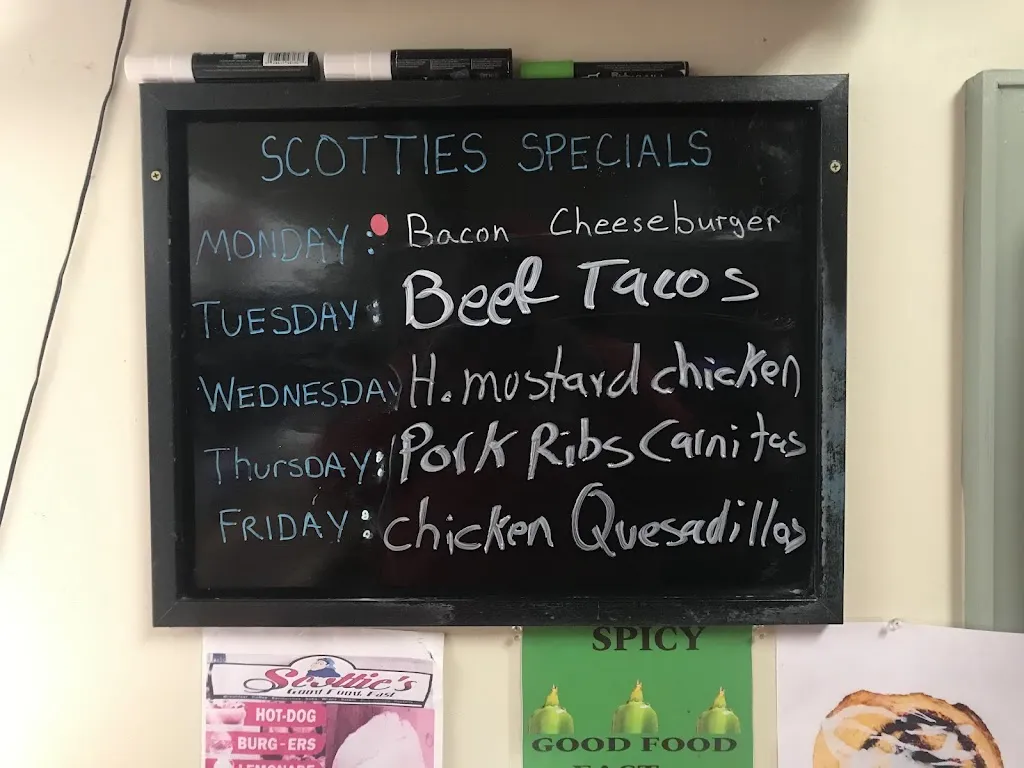 SCOTTIES SPECIALS
MONDAY : Bacon Cheeseburger
TUESDAY : Beef Tacos
WEDNESDAY H. mustard chicken
Thursday : Pork Ribs Carnitas
FRIDAY : chicken Quesadillas
Scottie's
Good Food, Fast
HOT-DOG
BURG-ERS
LEMONADE
SPICY
GOOD FOOD
FAST